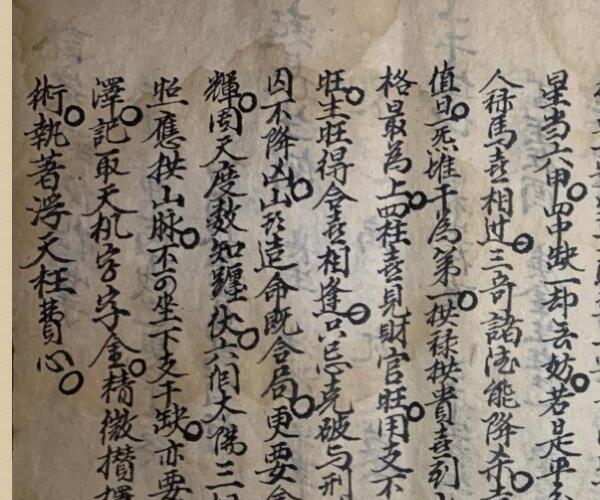 星当六甲。四中缺一却去妨。若是平
人禄馬喜相过。三奇諸德能降杀。
值旦天誰干為第一。拱禄拱貴喜到
格最為上。四柱喜見財官旺。用支不
旺。生旺得合喜相逢。只忌克破与刑
囚不降凶。山頭造命既合局。更要
輝。周天度数知躔伏。六個太陽三
照應拱山脉。不可坐下支干缺。亦要
澤。記取天机字字金。精微攢
術。執著浮天枉費心。